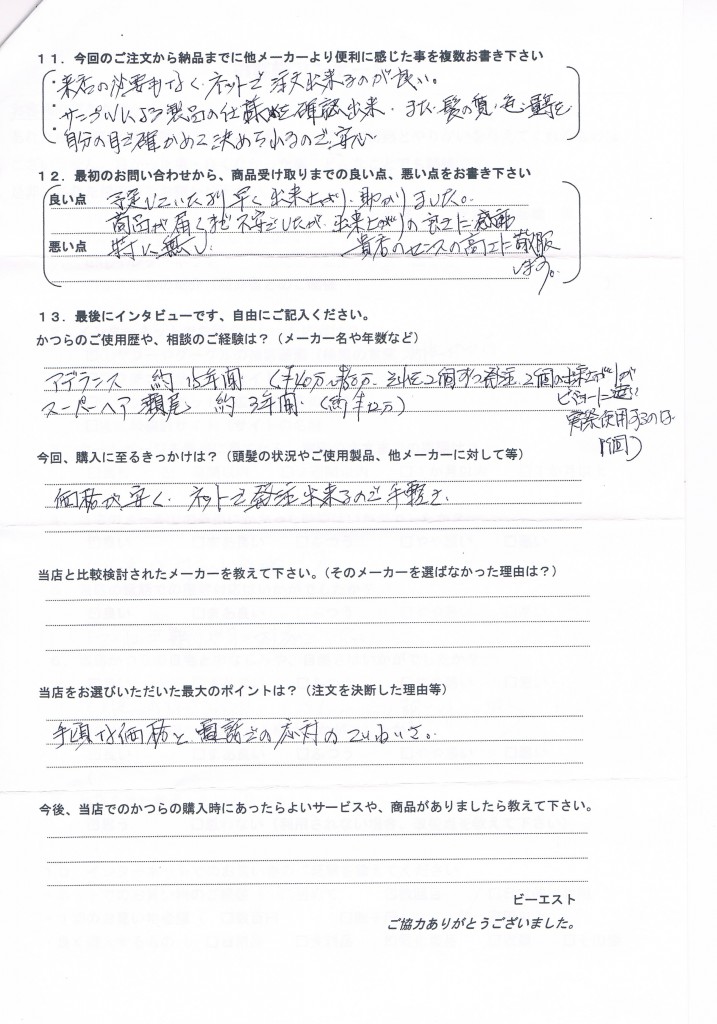 １１．今回のご注文から納品までに他メーカーより便利に感じた事を複数お書き下さい
・来店の必要もなく ネットで注文出来るのが良い。
・サンプルによる製品の仕様を確認出来、また、髪の質、色、量等を
・自分の目で確かめて決められるので安心
１２．最初のお問い合わせから、商品受け取りまでの良い点、悪い点をお書き下さい
良い点 予定していたより早く出来上がり、助かりました。
商品が届くまで不安でしたが、出来上がりの良さに感動
悪い点 特に無し 貴店のセンスの高さに敬服
します。
１３．最後にインタビューです、自由にご記入ください。
かつらのご使用歴や、相談のご経験は？（メーカー名や年数など）
アデランス 約15年間 2個ずつ発注、2個の出来上がりが
ビミョーに違い
スーパーヘア 約3年間
実際使用するのは
1個）
今回、購入に至るきっかけは？（頭髪の状況やご使用製品、他メーカーに対して等）
価格が安く、ネットで発注出来るので手軽さ
当店と比較検討されたメーカーを教えて下さい。（そのメーカーを選ばなかった理由は？）
当店をお選びいただいた最大のポイントは？（注文を決断した理由等）
手頃な価格と電話での応対のていねいさ。
今後、当店でのかつらの購入時にあったらよいサービスや、商品がありましたら教えて下さい。
ビーエスト
ご協力ありがとうございました。